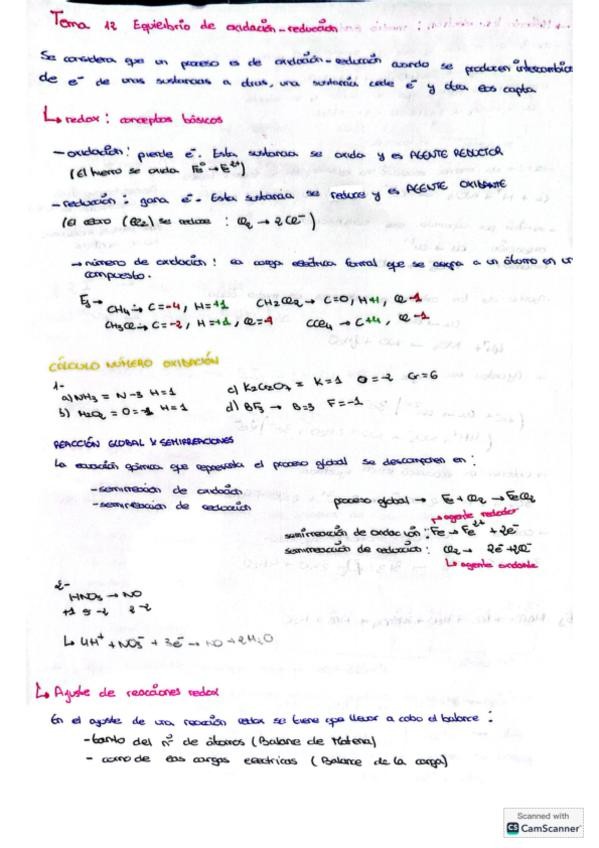 Tema 12 Equilibrio de oxidación-reducción
Se considera que un proceso es de oxidación-reducción cuando se producen intercambios
de e⁻ de unas sustancias a otras, una sustancia cede e⁻ y otra los capta.
↳ redox: conceptos básicos
- oxidación: pierde e⁻. Esta sustancia se oxida y es AGENTE REDUCTOR
(El hierro se oxida Fe⁰→Fe²⁺)
- reducción: gana e⁻. Esta sustancia se reduce y es AGENTE OXIDANTE
(El cloro (Cl₂) se reduce : Cl₂ → 2Cl⁻)
→ número de oxidación: es carga eléctrica formal que se asigna a un átomo en un
compuesto.
Ej→ CH₄→ C=-4, H=+1 CH₂Cl₂→ C=0, H+1, Cl-1
CH₃Cl→ C=-2, H=+1, Cl=-1 CCl₄ → C+4, Cl -1
CÁLCULO NÚMERO OXIDACIÓN
1-
a) NH₃ = N-3 H=1 c) K₂Cr₂O₇ = K=1 O=-2 Cr=6
b) H₂O₂ = O=-1 H=1 d) BF₃ → B=3 F=-1
REACCIÓN GLOBAL Y SEMIRREACIONES
La ecuación química que representa el proceso global se descomponen en:
- semirreación de oxidación
- semirreación de reducción
proceso global → Fe + Cl₂ → FeCl₂
↳ agente reductor
semirreación de oxidación: Fe → Fe²⁺ + 2e⁻
semirreación de reducción: Cl₂ → 2e⁻+2Cl⁻
↳ agente oxidante
2-
HNO₃ → NO
+1 5 -2 2 -2
↳ 4H⁺ + NO₃⁻ + 3e⁻ → NO + 2H₂O
↳ Ajuste de reacciones redox
En el ajuste de una reacción redox se tiene que llevar a cabo el balance:
- tanto del nº de átomos (Balance de Materia)
- como de las cargas eléctricas (Balance de la carga)
Scanned with
CS CamScanner